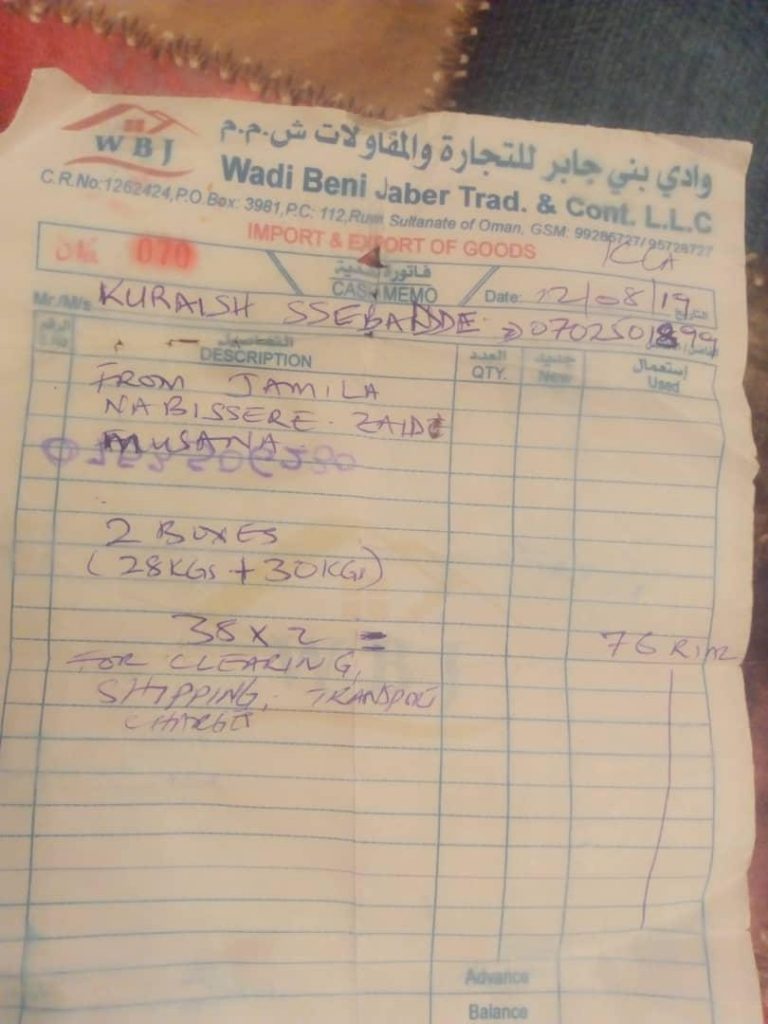 WBJ
وادي بني جابر للتجارة والمقاولات ش.م.م
Wadi Beni Jaber Trad. & Cont. L.L.C
C.R.No:1262424,P.O.Box: 3981,P.C: 112,Ruwi Sultanate of Oman, GSM: 99286727/95728727
IMPORT & EXPORT OF GOODS
070
KLA
فاتورة نقدية
CASH MEMO
Date: 12/08/19 التاريخ
Mr./M/s KURAISH SSEBADDE 0702501899
الرقم التفاصيل العدد جديد إستعمال
DESCRIPTION QTY. New Used
FROM JAMILA
NABISSERE. ZAIDI
MUSANA
2 BOXES
(28KGS + 30KGS)
38 x 2 = 76 RIAL
FOR CLEARING,
SHIPPING, TRANSPORT
CHARGES
Advance
Balance